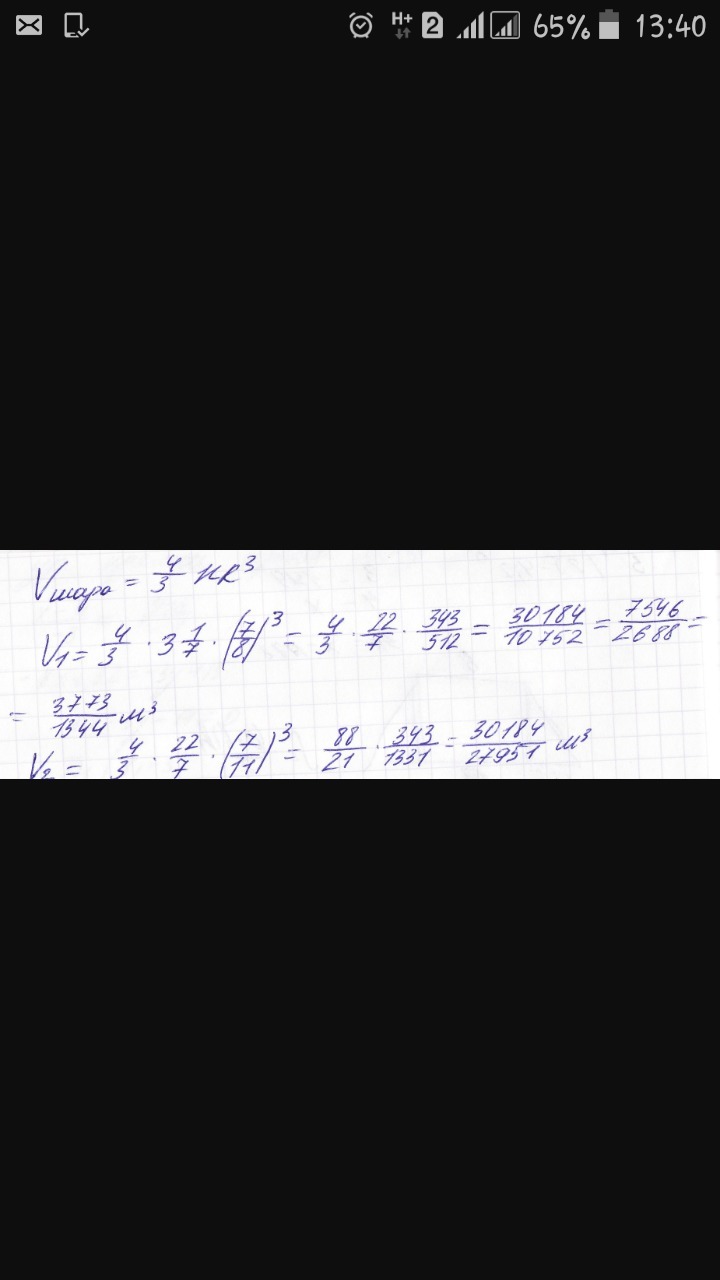 H+ 2 65% 13:40
Vшара = 4/3 πR³
V₁ = 4/3 · 3 1/7 · (7/8)³ = 4/3 · 22/7 · 343/512 = 30184/10752 = 7546/2688 =
= 3773/1344 м³
V₂ = 4/3 · 22/7 · (7/11)³ = 88/21 · 343/1331 = 30184/27951 м³